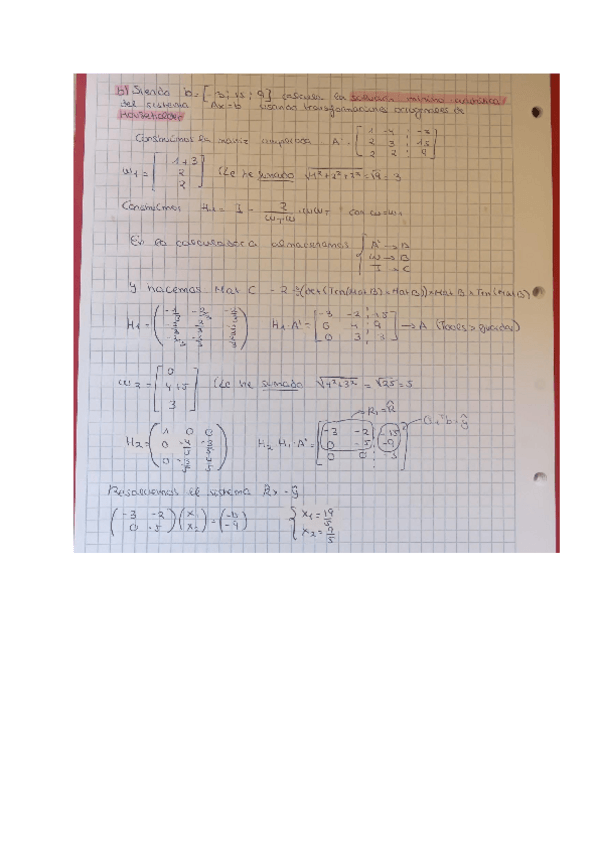 b) Siendo b = [-3; 15; 9] calcula la solución mínimo cuadrática
del sistema Ax=b usando transformaciones ortogonales de
Householder
Construimos la matriz ampliada A' = [1 -4 ; -3
2 3 ; 15
2 2 ; 9]
w1 = [1+3
2
2] (Le he sumado √1²+2²+2² = √9 = 3
Construimos H1 = I - 2/wTw · wwT con w=w1
En la calculadora almacenamos { A' → A
w → B
I → C
y hacemos Mat C - 2
H1 = H1·A' = [-3 -2 ; -15
0 4 ; 9
0 3 ; 3] → A (Todos > guardar)
w2 = [0
4+5
3] (Le he sumado √4²+3² = √25 = 5
R1 = R̂
H2 = (1 0 0
0 -4/5 -3/5
0 -3/5 4/5) H2·H1·A' = [-3 -2 -15
0 -5 -9
0 0 -3]
Resolvemos el sistema R̂x = ŷ
(-3 -2
0 -5)(x1
x2) = (-15
-9) { x1 = 19/5
x2 = 9/5